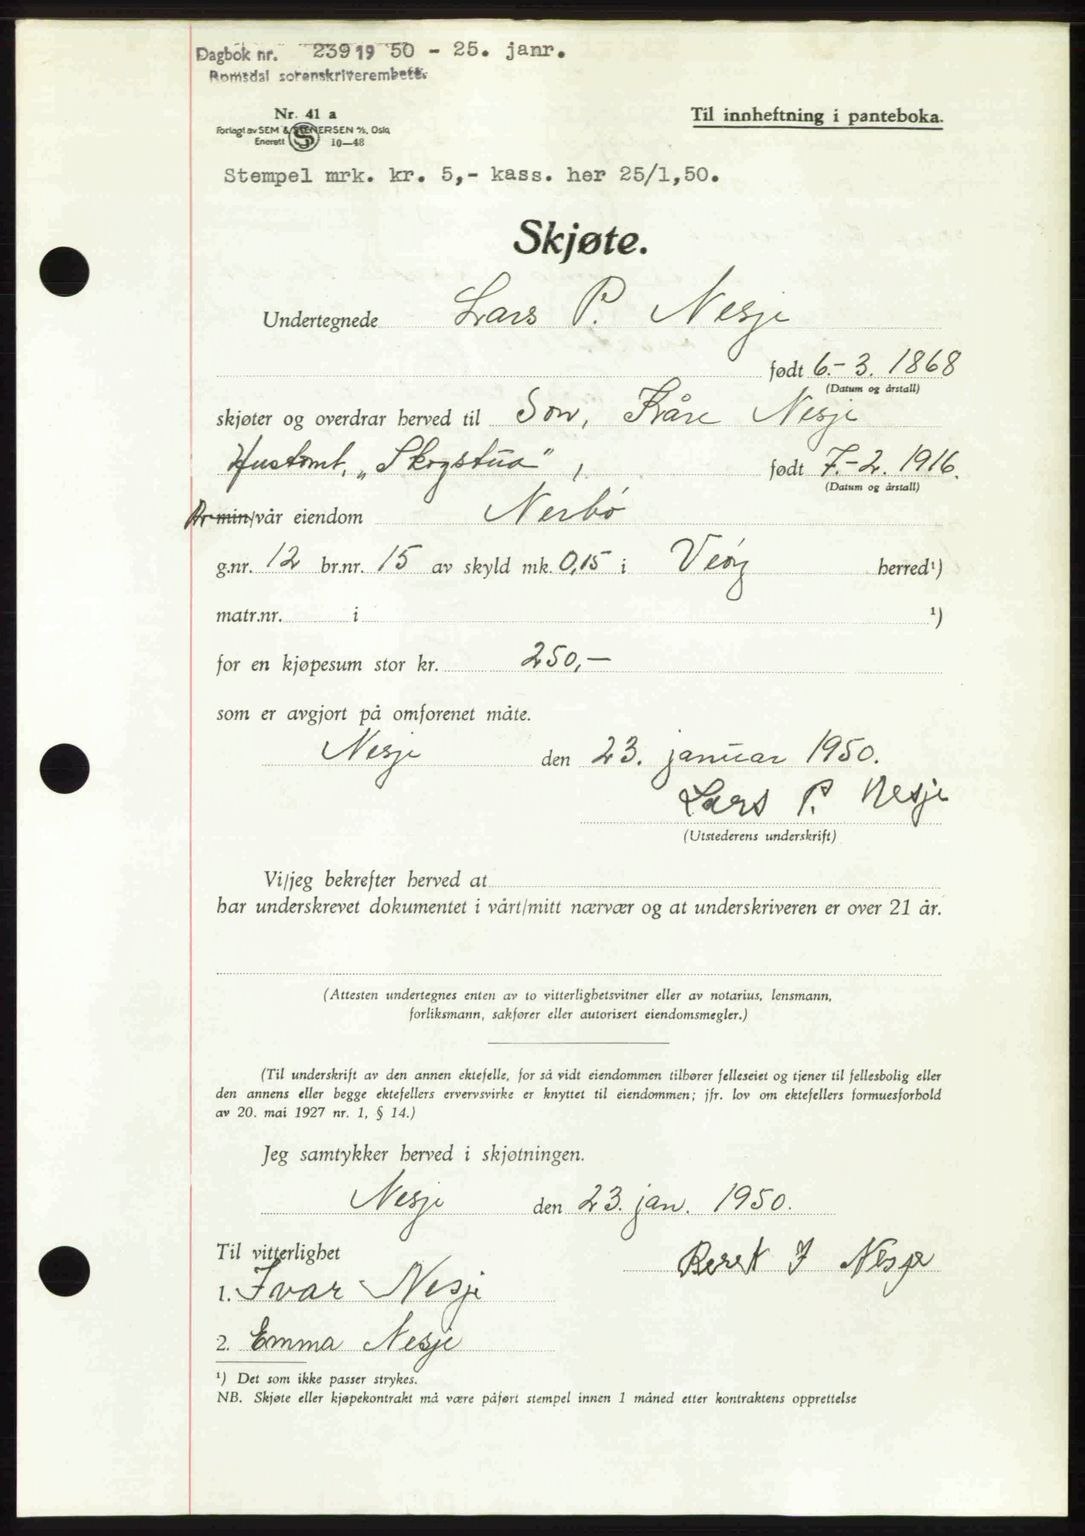 Dagbok nr. 239 19 50 - 25. janr.
Romsdal sorenskriverembete.
Nr. 41 a
Forlagt av SEM & STENERSEN A/S, Oslo
Enerett 10—48
Til innheftning i panteboka.
Stempel mrk. kr. 5,- kass. her 25/1,50.
Skjøte.
Undertegnede Lars P. Nesje
født 6.-3. 1868
(Datum og årstall)
skjøter og overdrar herved til Son, Kåre Nesje
Hustomt, „Skogstua",
født 7.-2. 1916.
(Datum og årstall)
min/vår eiendom Nerbø
g.nr. 12 br.nr. 15 av skyld mk. 0,15 i Veøy herred¹)
matr.nr. i ¹)
for en kjøpesum stor kr. 250,—
som er avgjort på omforenet måte.
Nesje den 23. januar 1950.
Lars P. Nesje
(Utstederens underskrift)
Vi/jeg bekrefter herved at
har underskrevet dokumentet i vårt/mitt nærvær og at underskriveren er over 21 år.
(Attesten undertegnes enten av to vitterlighetsvitner eller av notarius, lensmann,
forliksmann, sakfører eller autorisert eiendomsmegler.)
(Til underskrift av den annen ektefelle, for så vidt eiendommen tilhører felleseiet og tjener til fellesbolig eller
den annens eller begge ektefellers ervervsvirke er knyttet til eiendommen; jfr. lov om ektefellers formuesforhold
av 20. mai 1927 nr. 1, § 14.)
Jeg samtykker herved i skjøtningen.
Nesje den 23. jan. 1950.
Til vitterlighet
Nesje
1. Ivar Nesje
2. Emma Nesje
¹) Det som ikke passer strykes.
NB. Skjøte eller kjøpekontrakt må være påført stempel innen 1 måned etter kontraktens opprettelse